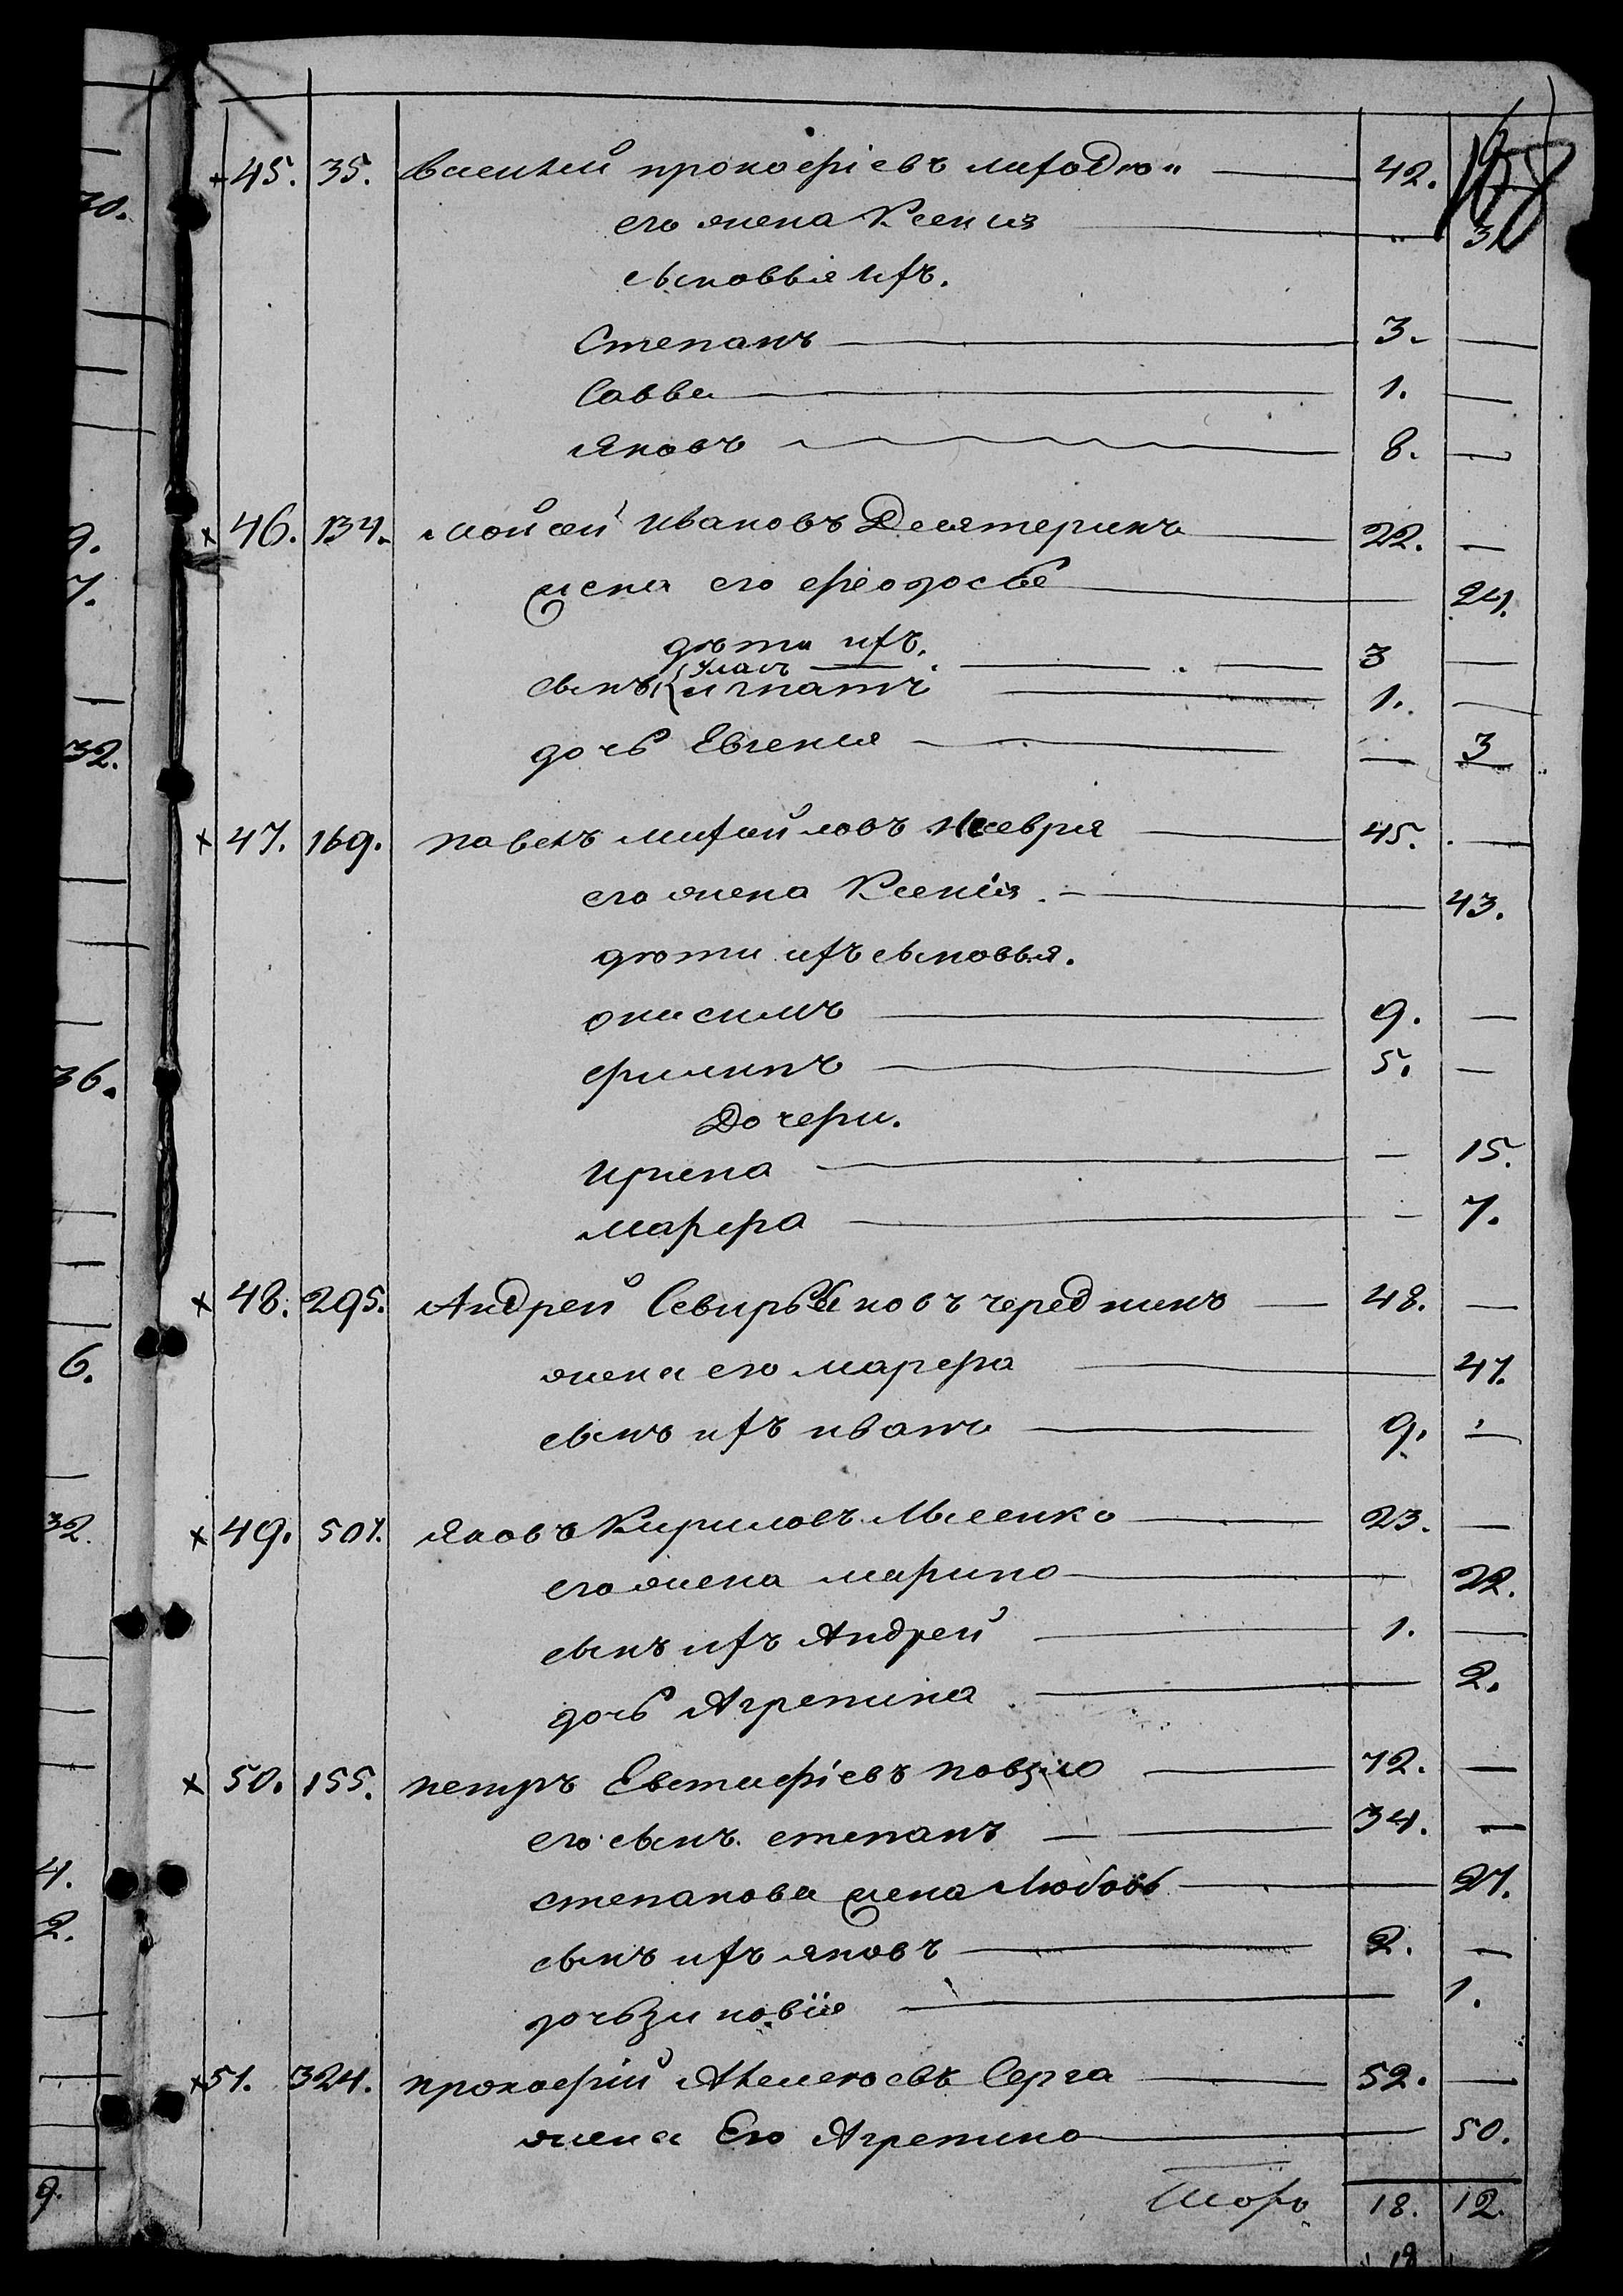 45. 35. Василий прокофіевъ лиходю 42.
его жена Ксения 3
сыновья ихъ.
Степанъ — 3. —
Савва — 1. —
Яковъ — 8. —
х 46. 134. мойсей Ивановъ Десятеринъ — 22. —
жена его феодосья — 24.
дѣти ихъ.
Улас — 3 —
сынъ игнатъ — 1. —
дочь Евгения — — 3
х 47. 169. павелъ михайловъ — 45. —
его жена Ксенія — 43.
дѣти ихъ сыновья.
онисимъ — 9. —
филипъ — 5. —
Дочери.
Ирина — — 15.
марфа — — 7.
х 48. 295. Андрей Севирьяновъ чередникъ — 48. —
жена его марфа — 47.
сынъ ихъ иванъ — 9. —
х 49. 507. Яковъ Кириловъ — 23. —
его жена марина — 22.
сынъ ихъ Андрей — 1. —
дочь Агрепина — 2.
х 50. 155. петръ Евстафіевъ — 72. —
его сынъ степанъ — 34. —
степанова жена Любовь — 27.
сынъ ихъ яковъ — 2. —
дочь зиновія — 1.
х 51. 324. прокофій Серга — 52. —
жена Его Агрепина — 50.
Итого 18. 12.
70.
9.
7.
32.
36.
6.
32.
4.
2.
9.